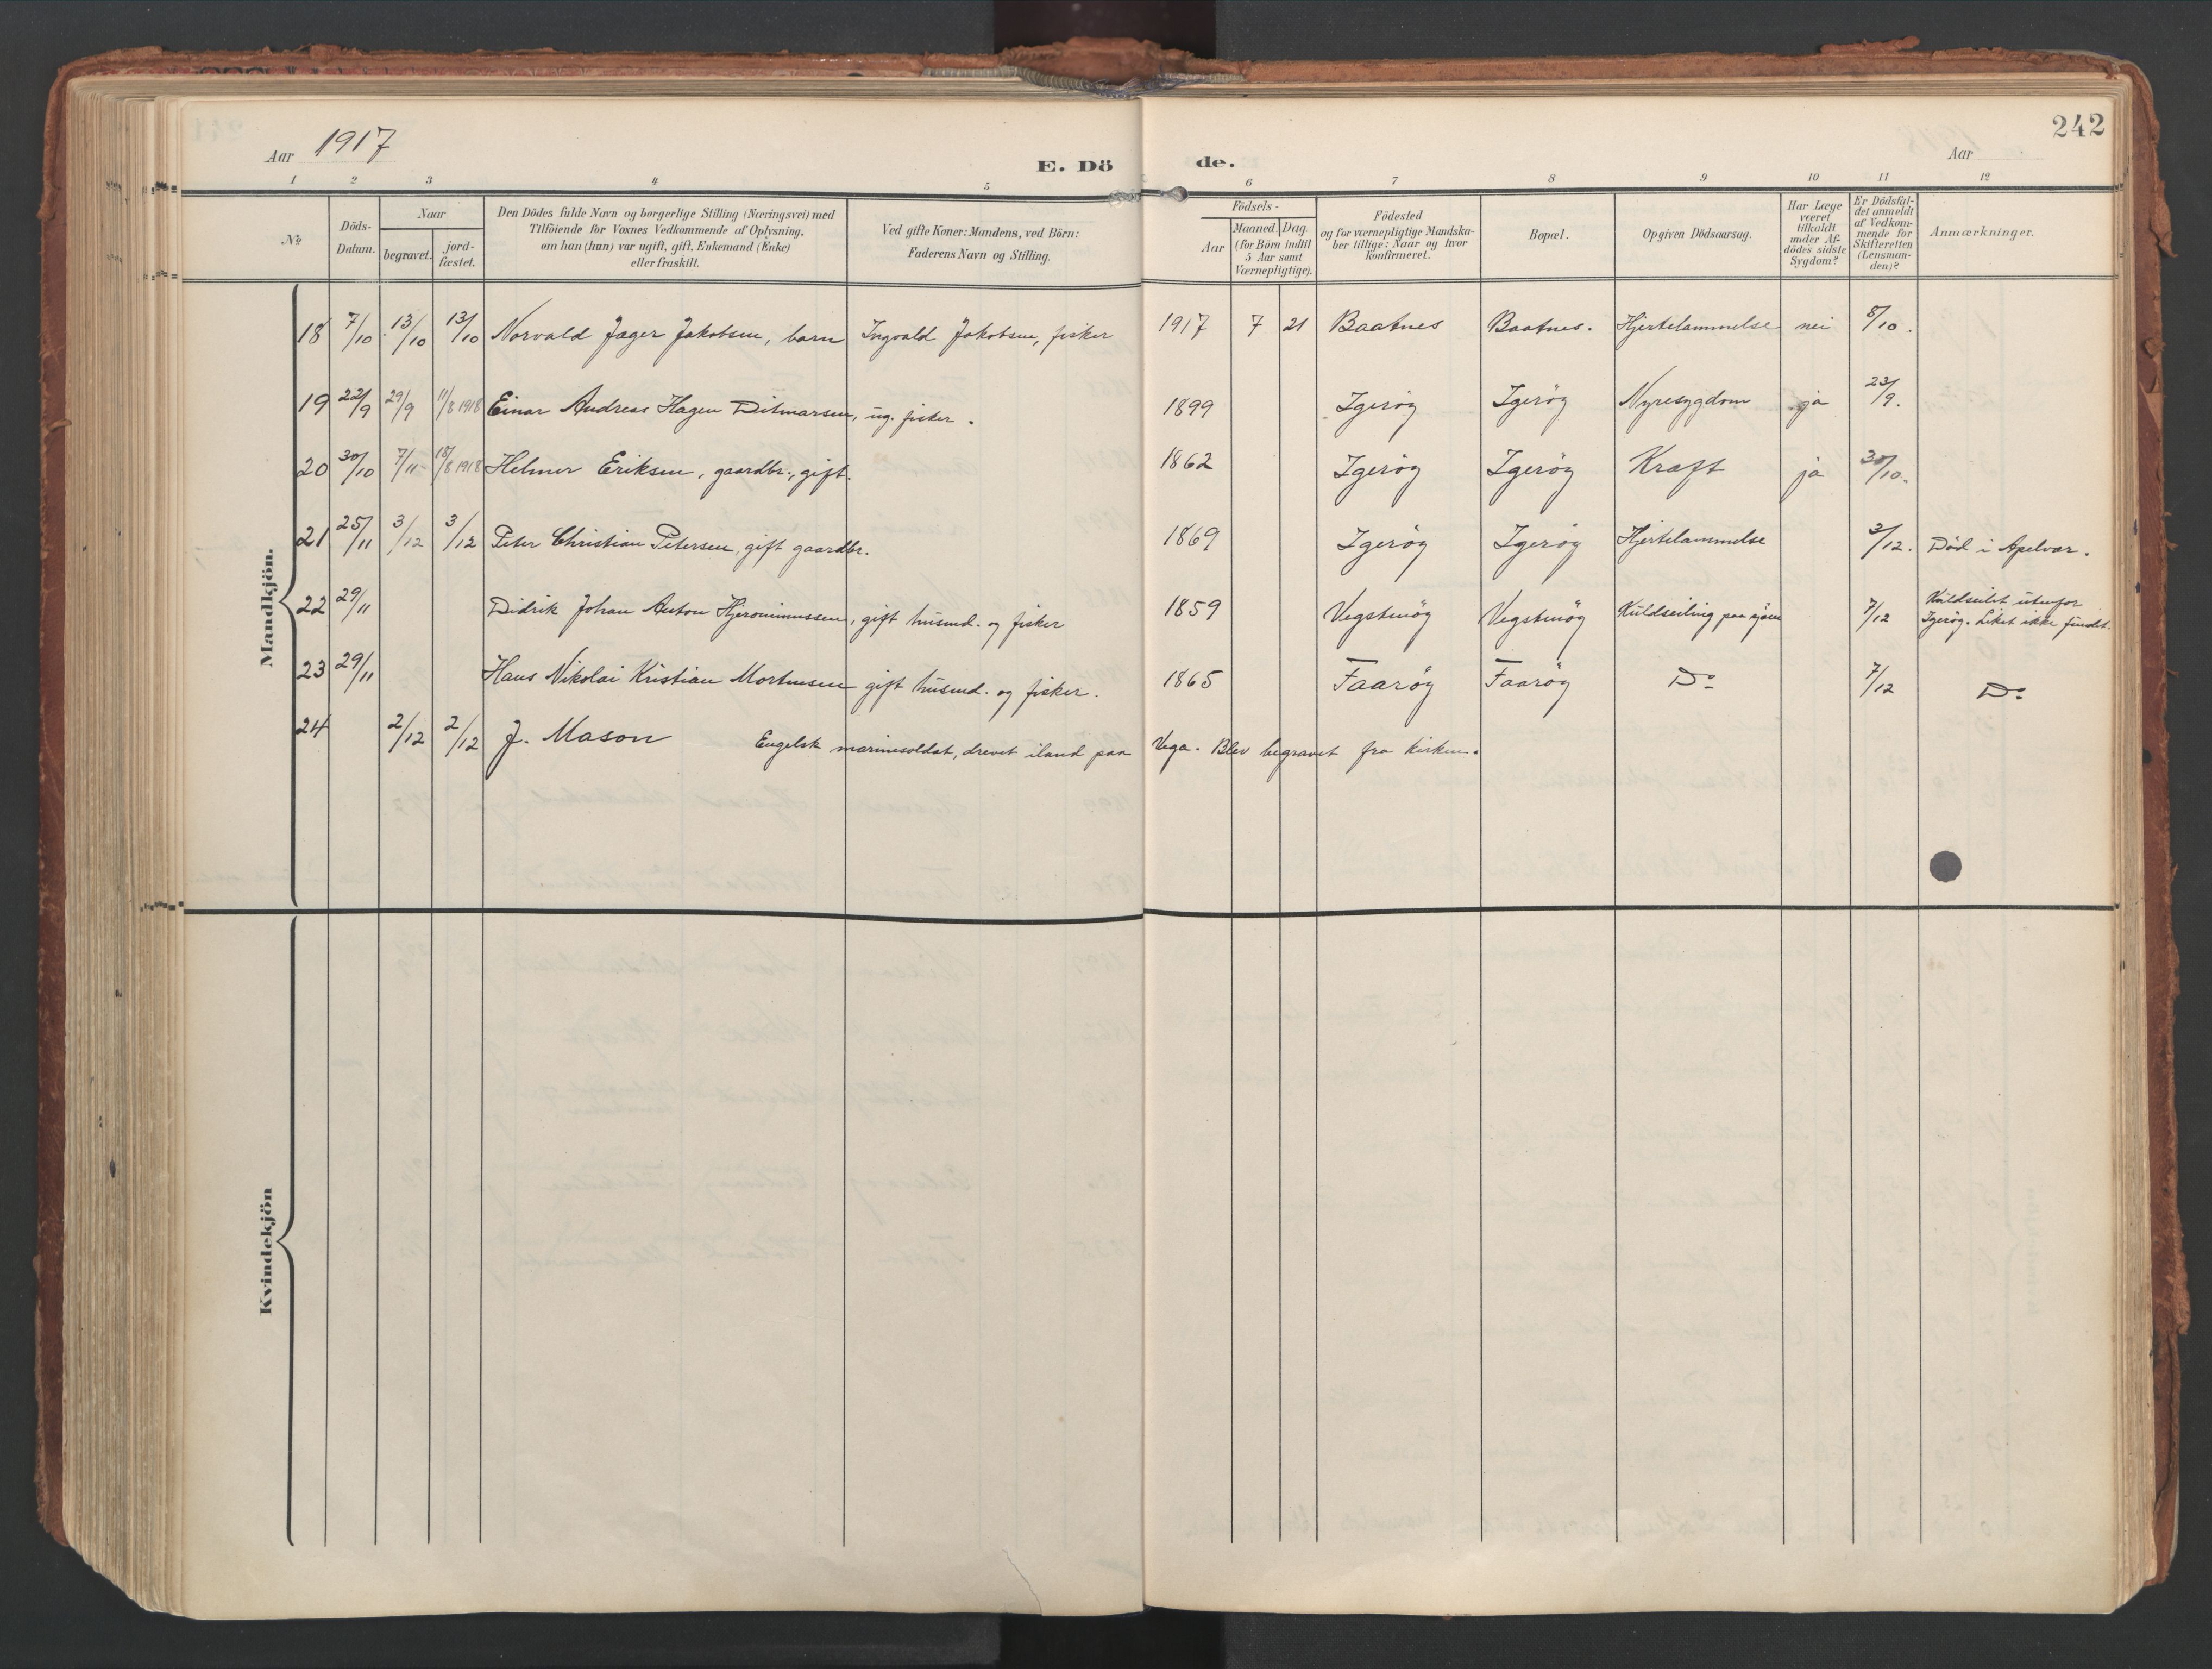 242
Aar 1917
E. Döde.
Aar
1 2 3 4 5 6 7 8 9 10 11 12
№
Döds-Datum.
Naar
begravet.
jord-fæstet.
Den Dödes fulde Navn og borgerlige Stilling (Næringsvei) med
Tilföiende for Voxnes Vedkommende af Oplysning,
om han (hun) var ugift, gift, Enkemand (Enke)
eller fraskilt.
Ved gifte Koner: Mandens, ved Börn:
Faderens Navn og Stilling.
Födsels-
Aar
Maaned. Dag.
(for Börn indtil
5 Aar samt
Værnepligtige).
Födested
og for værnepligtige Mandska-
ber tillige: Naar og hvor
konfirmeret.
Bopæl.
Opgiven Dödsaarsag.
Har Læge
været
tilkaldt
under Af-
dödes sidste
Sygdom?
Er Dödsfal-
det anmeldt
af Vedkom-
mende for
Skifteretten
(Lensman-
den)?
Anmærkninger.
Mandkjön.
18 7/10 13/10 13/10 Norvald Jæger Jakobsen, barn Ingvald Jakobsen, fisker 1917 7 21 Baatnes Baatnes. Hjertelammelse nei 8/10.
19 22/9 29/9 11/8 1918 Einar Andreas Hagen Ditmarsen, ug. fisker. 1899 Igeröy Igeröy Nyresygdom ja 23/9.
20 30/10 7/11 18/8 1918 Helmer Eriksen, gaardbr., gift. 1862 Igeröy Igeröy Kræft ja 30/10.
21 25/11 3/12 3/12 Peter Christian Petersen, gift gaardbr. 1869 Igeröy Igeröy Hjertelammelse 3/12. Död i Apelvær.
22 29/11 Didrik Johan Anton Hjeronimussen, gift husmd. og fisker 1859 Vegstenöy Vegstenöy Kuldseiling paa sjöen 7/12 Kuldseilet utenfor
Igeröy. Liket ikke fundet.
23 29/11 Hans Nikolai Kristian Mortensen gift husmd. og fisker. 1865 Faaröy Faaröy Do 7/12 Do
24 2/12 2/12 J. Mason Engelsk marinesoldat, drevet iland paa Vega. Blev begravet fra kirken.
Kvindekjön